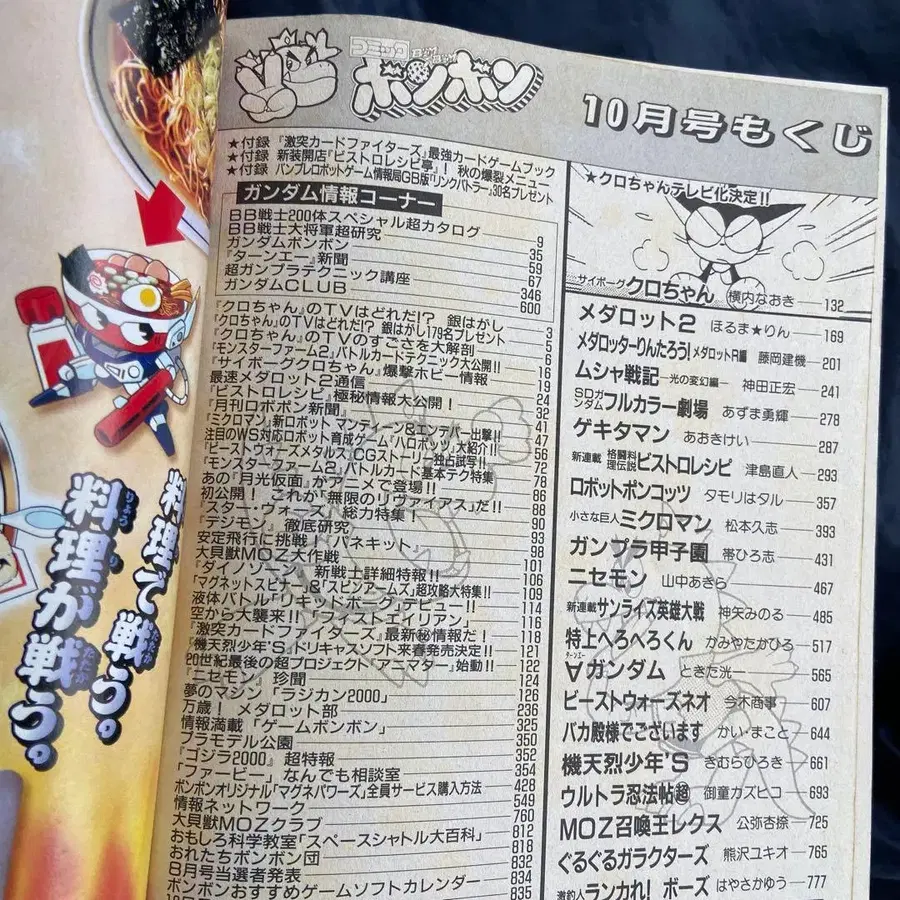 コミック
ボンボン
10月号もくじ
★付録 『激突カードファイターズ』最強カードゲームブック
★付録 新装開店『ビストロレシピ亭』! 秋の爆裂メニュー
★付録 バンプレロボットゲーム情報局GB版『リンクバトラー』30名プレゼント
ガンダム情報コーナー
BB戦士200体スペシャル超カタログ 9
BB戦士大将軍超研究 35
ガンダムボンボン 59
『ターンエー』新聞 67
超ガンプラテクニック講座 346
ガンダムCLUB 600
『クロちゃん』のTVはどれだ!? 銀はがし 3
『クロちゃん』のTVはどれだ!? 銀はがし179名プレゼント 5
『クロちゃん』のTVのすごさを大解剖 6
『モンスターファーム2』バトルカードテクニック大公開!! 16
『サイボーグクロちゃん』爆撃ホビー情報 19
最速メダロット2通信 24
『ビストロレシピ』極秘情報大公開! 32
『月刊ロボポン新聞』 41
『ミクロマン』新ロボット マンディーン&エンディー出撃!! 47
注目のWS対応ロボット育成ゲーム『ハロボッツ』大紹介!! 56
『ビーストウォーズメタルス』CGストーリー独占試写!! 72
『モンスターファーム2』バトルカード基本テク特集 78
あの『月光仮面』がアニメで登場!! 86
初公開! これが『無限のリヴァイアス』だ!! 88
『スター・ウォーズ』 総力特集! 90
『デジモン』 徹底研究 93
安定飛行に挑戦『バネキット』 98
大貝獣MOZ大作戦 101
『ダイノゾーン』 新戦士詳細特報!! 106
「マグネットスピナー」&「スピンアームズ」超攻略大特集!! 109
液体バトル「リキッドボーグ」デビュー!! 114
空から大襲来!!「フィストエイリアン」 116
『激突カードファイターズ』最新秘情報だ! 118
『機天烈少年'S』ドリキャスソフト来春発売決定!! 121
20世紀最後の超プロジェクト「アニマター」始動!! 122
『ニセモン』 珍聞 124
夢のマシン「ラジカン2000」 126
万歳! メダロット部 236
情報満載「ゲームボンボン」 325
プラモデル公園 350
『ゴジラ2000』超特報 352
「ファービー」なんでも相談室 354
ボンボンオリジナル「マグネパワーズ」全員サービス購入方法 428
情報ネットワーク 549
大貝獣MOZクラブ 760
おもしろ科学教室「スペースシャトル大百科」 812
おれたちボンボン団 818
8月号当選者発表 832
ボンボンおすすめゲームソフトカレンダー 834
835
★クロちゃんテレビ化決定!!
サイボーグクロちゃん 横内なおき 132
メダロット2 ほるま★りん 169
メダロッターりんたろう! メダロットR編 藤岡建機 201
ムシャ戦記 ―光の変幻編― 神田正宏 241
SDガンダムフルカラー劇場 あずま勇輝 278
ゲキタマン あおきけい 287
新連載 格闘料理伝説ビストロレシピ 津島直人 293
ロボットポンコッツ タモリはタル 357
小さな巨人ミクロマン 松本久志 393
ガンプラ甲子園 帯ひろ志 431
ニセモン 山中あきら 467
新連載サンライズ英雄大戦 神矢みのる 485
特上へろへろくん かみやたかひろ 517
∀ガンダム ターンエー ときた洸一 565
ビーストウォーズネオ 今木商事 607
バカ殿様でございます かい・まこと 644
機天烈少年'S きむらひろき 661
ウルトラ忍法帖超 御童カズヒコ 693
MOZ召喚王レクス 公弥杏捺 725
ぐるぐるガラクターズ 熊沢ユキオ 765
激釣人ランカれ! ボーズ はやさかゆう 777
料理で戦う。
料理が戦う。
りょう
り
たたか